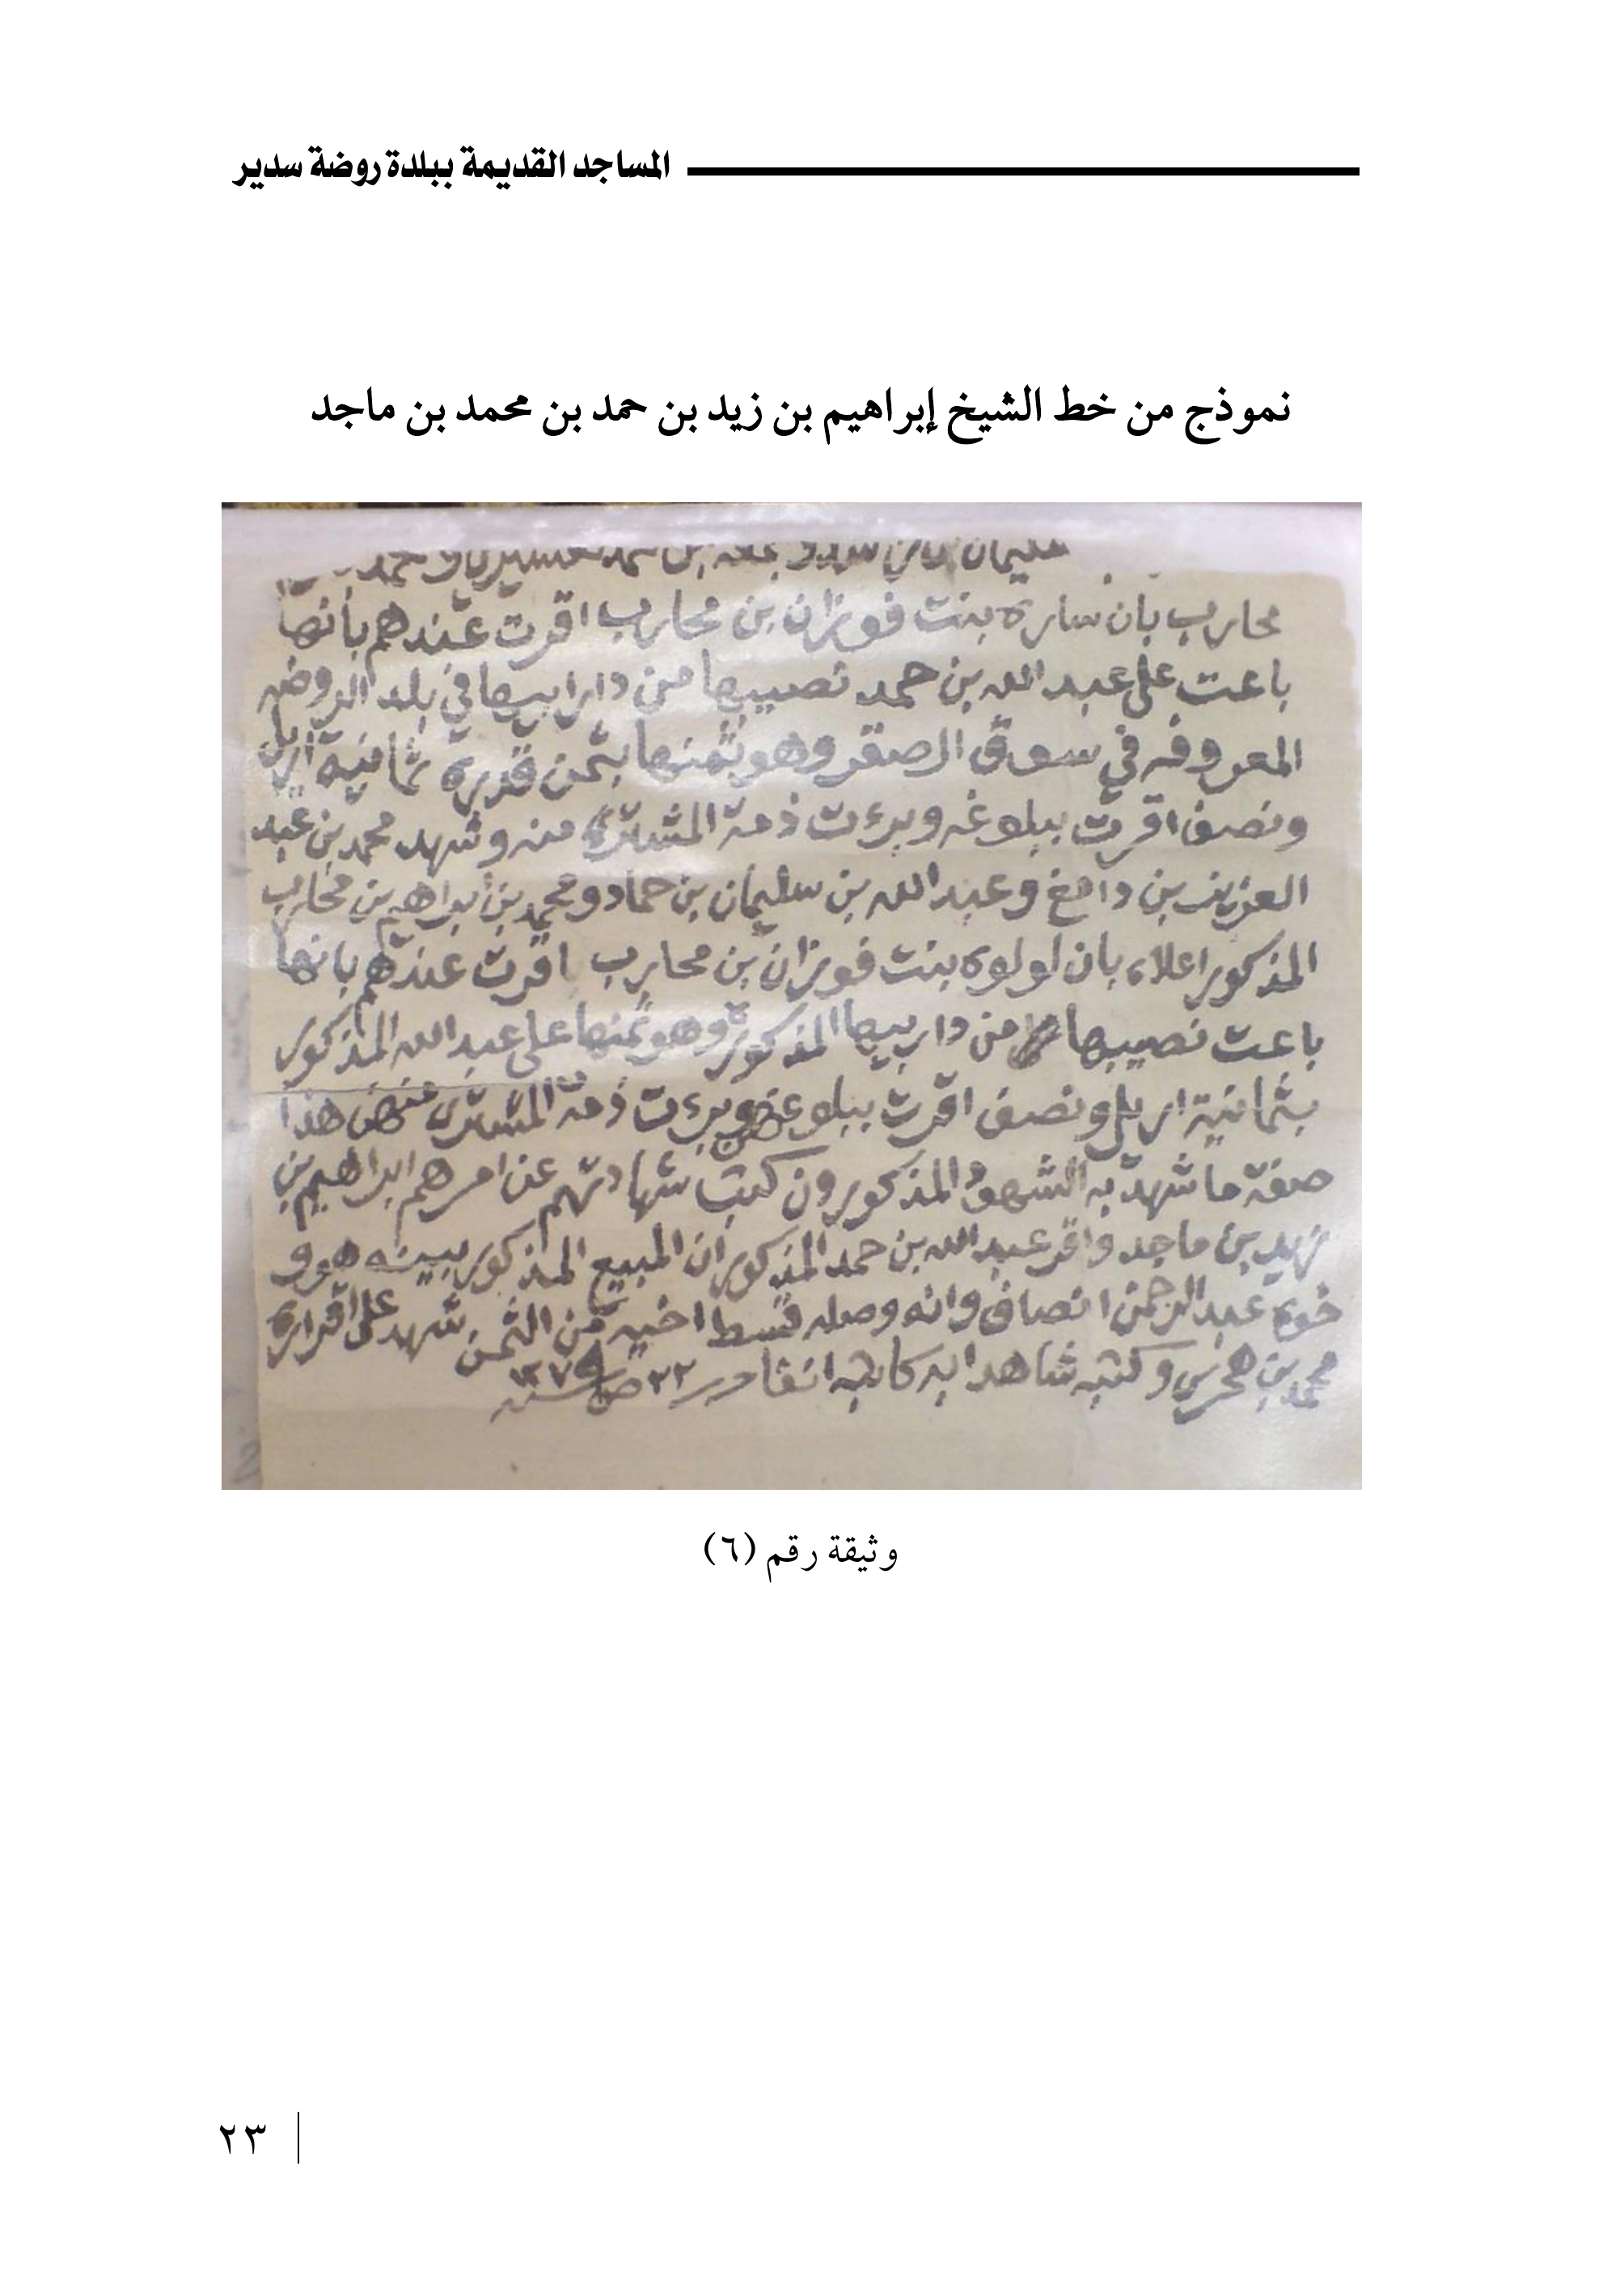 المساجد القديمة ببلدة روضة سدير
نموذج من خط الشيخ إبراهيم بن زيد بن حمد بن محمد بن ماجد
سليمان بن
محارب بان ساره بنت فوزان بن محارب اقرت عندهم بأنها
باعت على عبد الله بن حمد نصيبها من دار ابيها في بلد الروضه
المعروفه في سوق الصقر وهو ثمنها بثمن قدره ثمانية اريل
ونصف اقرت ببلوغه وبرءت ذمة المشتري منه وشهد محمد بن عبد
العزيز بن دامغ وعبد الله بن سليمان بن حماد ومحمد بن ابراهيم بن محارب
المذكور اعلاه بان لولوه بنت فوزان بن محارب اقرت عندهم بانها
باعت نصيبها من دار بيها المذكورة وهو ثمنها على عبد الله المذكور
بثمانية اريل ونصف اقرت ببلوغه وبرءت ذمة المشتري هذا
صفة ما شهد به الشهود المذكورون كتب شهادتهم عن امرهم ابراهيم بن
زيد بن ماجد واقر عبد الله بن حمد المذكور ان المبيع المذكور بينه هو و
خوه عبد الرحمن انصاف وانه وصله قسط اخيه من الثمن شهد على اقراره
محمد بن وكتبه شاهدا به كاتبه ٢٢ ص سنه
وثيقة رقم (٦)
٢٣